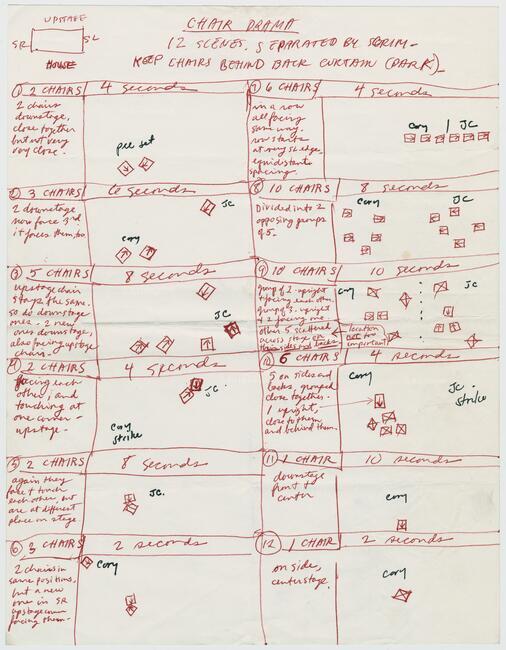 UPSTAGE
SR
SL
HOUSE
CHAIR DRAMA
12 SCENES, SEPARATED BY SCRIM -
KEEP CHAIRS BEHIND BACK CURTAIN (DARK)
① 2 CHAIRS
4 seconds
2 chairs
downstage,
close together
but not very
very close.
pre set
② 3 CHAIRS
6 seconds
2 downstage
now face 3rd
it faces them, too
Cory
JC
③ 5 CHAIRS
8 seconds
upstage chair
stays the same.
so do downstage
ones - 2 new
ones downstage,
also facing upstage
chair -
JC
④ 2 CHAIRS
4 seconds
facing each
other, and
touching at
one corner -
upstage -
JC.
Cory
strike
⑤ 2 CHAIRS
8 seconds
again they
face & touch
each other, but
are at different
place on stage
JC.
⑥ 3 CHAIRS
2 seconds
2 chairs in
same positions,
but a new
one in SR
upstage corner
facing them -
Cory
⑦ 6 CHAIRS
4 seconds
in a row
all facing
same way.
row starts
at very SL edge -
equidistant
spacing.
Cory / JC
⑧ 10 CHAIRS
8 seconds
Divided into 2
opposing groups
of 5.
Cory
JC
⑨ 10 CHAIRS
10 seconds
group of 2 - upright
& facing each other.
group of 3, upright
other 5 scattered
across stage on
their sides and backs
location
not too
important
Cory
JC
⑩ 6 CHAIRS
4 seconds
5 on sides and
backs, grouped
close together.
1 upright,
close to them
and behind them.
Cory
JC.
strike
⑪ 1 CHAIR
10 seconds
downstage
front &
center
Cory
⑫ 1 CHAIR
2 seconds
on side,
center stage.
Cory